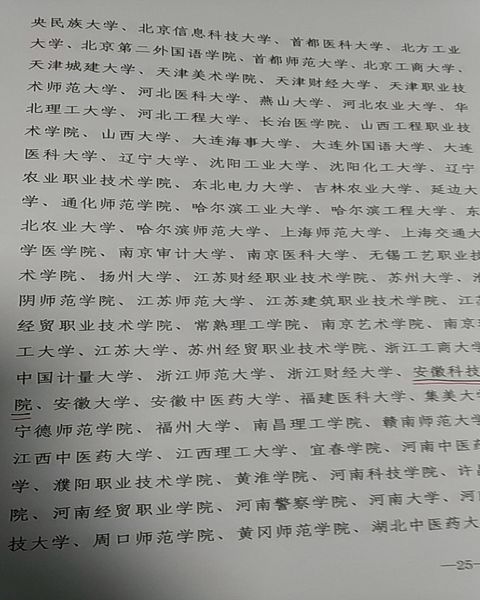 央民族大学、北京信息科技大学、首都医科大学、北方工业
大学、北京第二外国语学院、首都师范大学、北京工商大学、
天津城建大学、天津美术学院、天津财经大学、天津职业技
术师范大学、河北医科大学、燕山大学、河北农业大学、华
北理工大学、河北工程大学、长治医学院、山西工程职业技
术学院、山西大学、大连海事大学、大连外国语大学、大连
医科大学、辽宁大学、沈阳工业大学、沈阳化工大学、辽宁
农业职业技术学院、东北电力大学、吉林农业大学、延边大
学、通化师范学院、哈尔滨工业大学、哈尔滨工程大学、东
北农业大学、哈尔滨师范大学、上海师范大学、上海交通大
学医学院、南京审计大学、南京医科大学、无锡工艺职业技
术学院、扬州大学、江苏财经职业技术学院、苏州大学、淮
阴师范学院、江苏师范大学、江苏建筑职业技术学院、江苏
经贸职业技术学院、常熟理工学院、南京艺术学院、南京理
工大学、江苏大学、苏州经贸职业技术学院、浙江工商大学
中国计量大学、浙江师范大学、浙江财经大学、安徽科技
院、安徽大学、安徽中医药大学、福建医科大学、集美大学
宁德师范学院、福州大学、南昌理工学院、赣南师范大学
江西中医药大学、江西理工大学、宜春学院、河南中医药
学、濮阳职业技术学院、黄淮学院、河南科技学院、许昌
院、河南经贸职业学院、河南警察学院、河南大学、河南
技大学、周口师范学院、黄冈师范学院、湖北中医药大
—25—